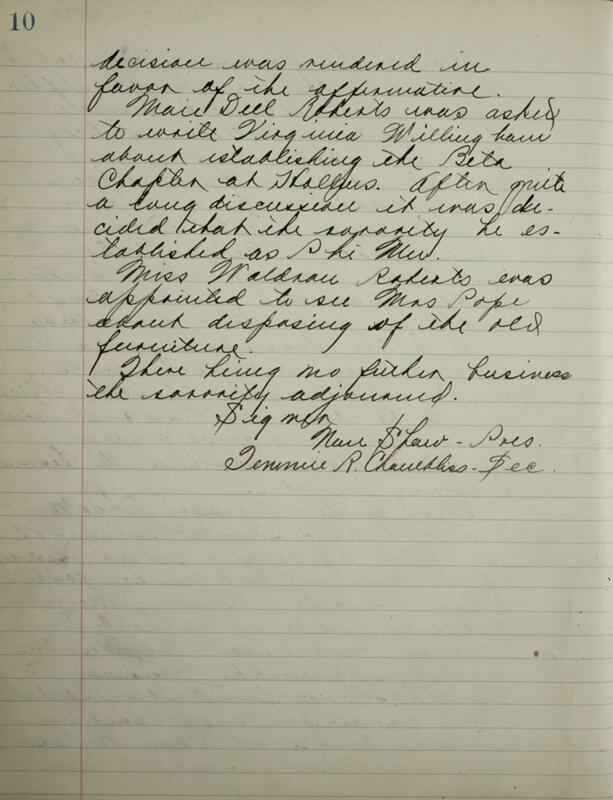 10
decision was rendered in
favor of the affirmative.
Maie Dell Roberts was asked
to write Virginia Willingham
about establishing the Beta
Chapter at Hollins. After quite
a long discussion it was de-
cided that the sorority be es-
tablished as Phi Mu.
Miss Waldran Roberts was
appointed to see Mrs Pope
about disposing of the old
furniture.
There being no futher business
the sorority adjourned.
Signed
Shaw - Pres.
Temmie R. Chambliss - Sec.